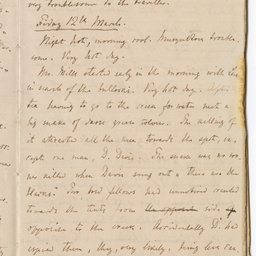 very troublesome to the traveller.
Friday 12th March.
Night hot, morning cool. Musquitoes trouble
some. Very hot day.
Mr. Wills started early in the morning with
in search of the bullocks. Very hot day.
having to go to the creek for water met a
big snake of green colour. The killing of
it attracted all the men towards the spot, ex
cept one man, D. The snake was no soo
ner killed when sung out, there are the
blacks. These fellows had
towards the tents from the opposite side of
opposite to the creek. Accidentally D. had
espied them, they, very likely, being